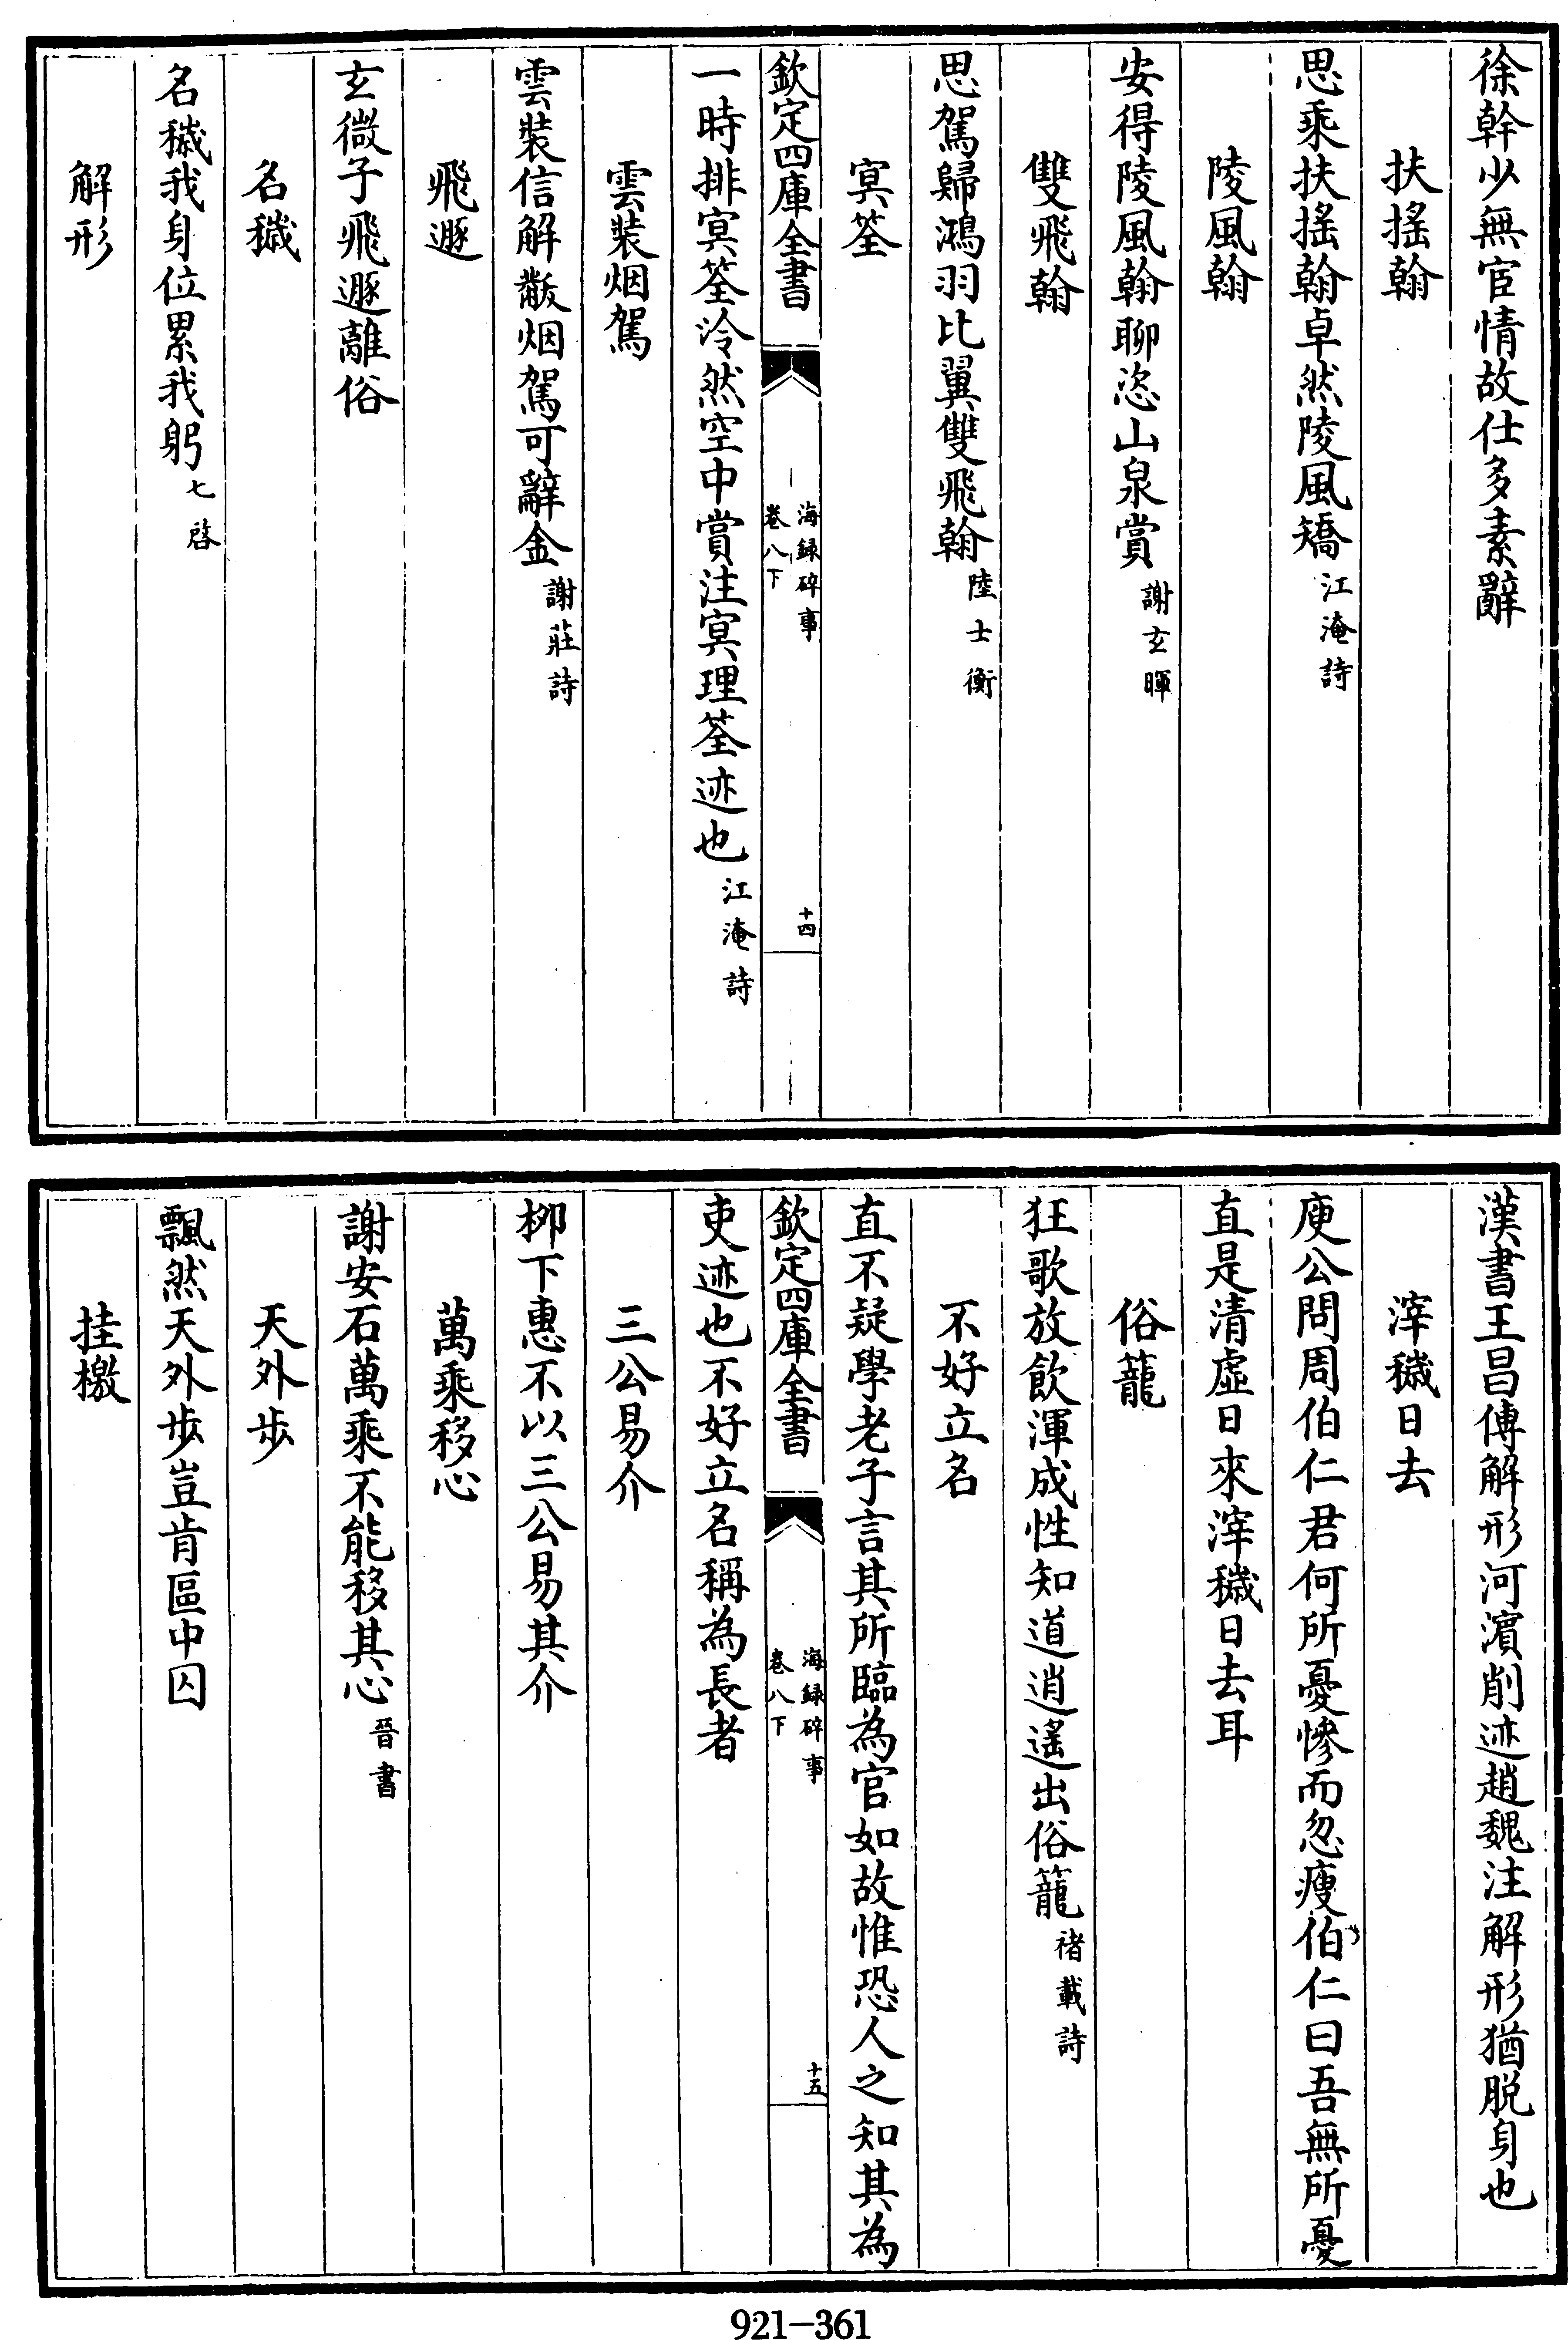 徐幹少無宦情故仕多素辭
扶搖翰
思乘扶搖翰卓然陵風矯江淹詩
陵風翰
安得陵風翰聊恣山泉賞謝玄暉
雙飛翰
思駕歸鴻羽比翼雙飛翰陸士衡
冥筌
欽定四庫全書
海録碎事
卷八下
十四
一時排冥筌泠然空中賞注冥理筌迹也江淹詩
雲裝烟駕
雲裝信解黻烟駕可辭金謝莊詩
飛遯
玄微子飛遯離俗
名穢
名穢我身位累我躬七啓
解形
漢書王昌傅解形河濵削迹趙魏注解形猶脱身也
滓穢日去
庾公問周伯仁君何所憂慘而忽瘦伯仁曰吾無所憂
直是清虛日來滓穢日去耳
俗籠
狂歌放飲渾成性知道逍遙出俗籠禇載詩
不好立名
直不疑學老子言其所臨為官如故惟恐人之知其為
欽定四庫全書
海録碎事
卷八下
十五
吏迹也不好立名稱為長者
三公易介
柳下惠不以三公易其介
萬乘移心
謝安石萬乘不能移其心晉書
天外步
飄然天外步豈肯區中囚
挂檄
921-361